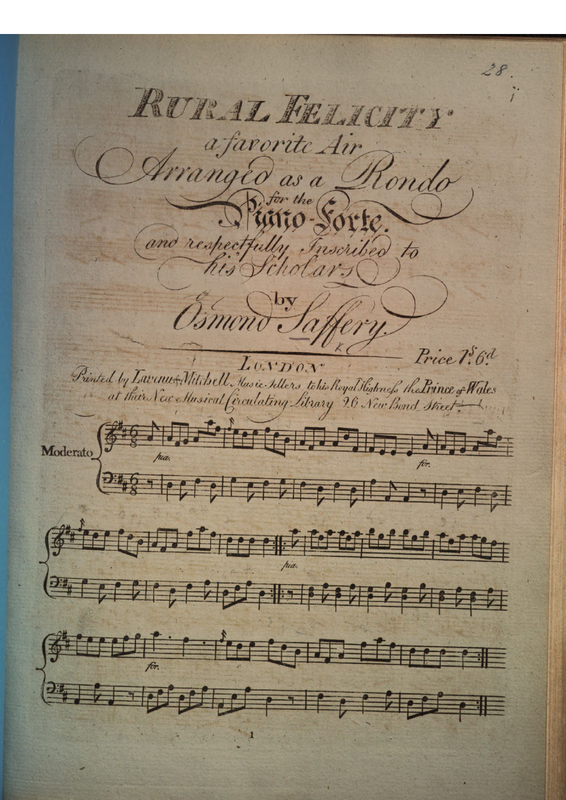 28.
RURAL FELICITY
a favorite Air
Arranged as a Rondo
for the
Piano-Forte.
and respectfully Inscribed to
his Scholars
by
Osmond Saffery.
Price 1s. 6d.
LONDON
Printed by Lavenu & Mitchell Music Sellers to his Royal Highness the Prince of Wales
at their New Musical Circulating Library 26 New Bond Street.
Moderato
6 8
pia.
for.
6 8
pia.
for.
1